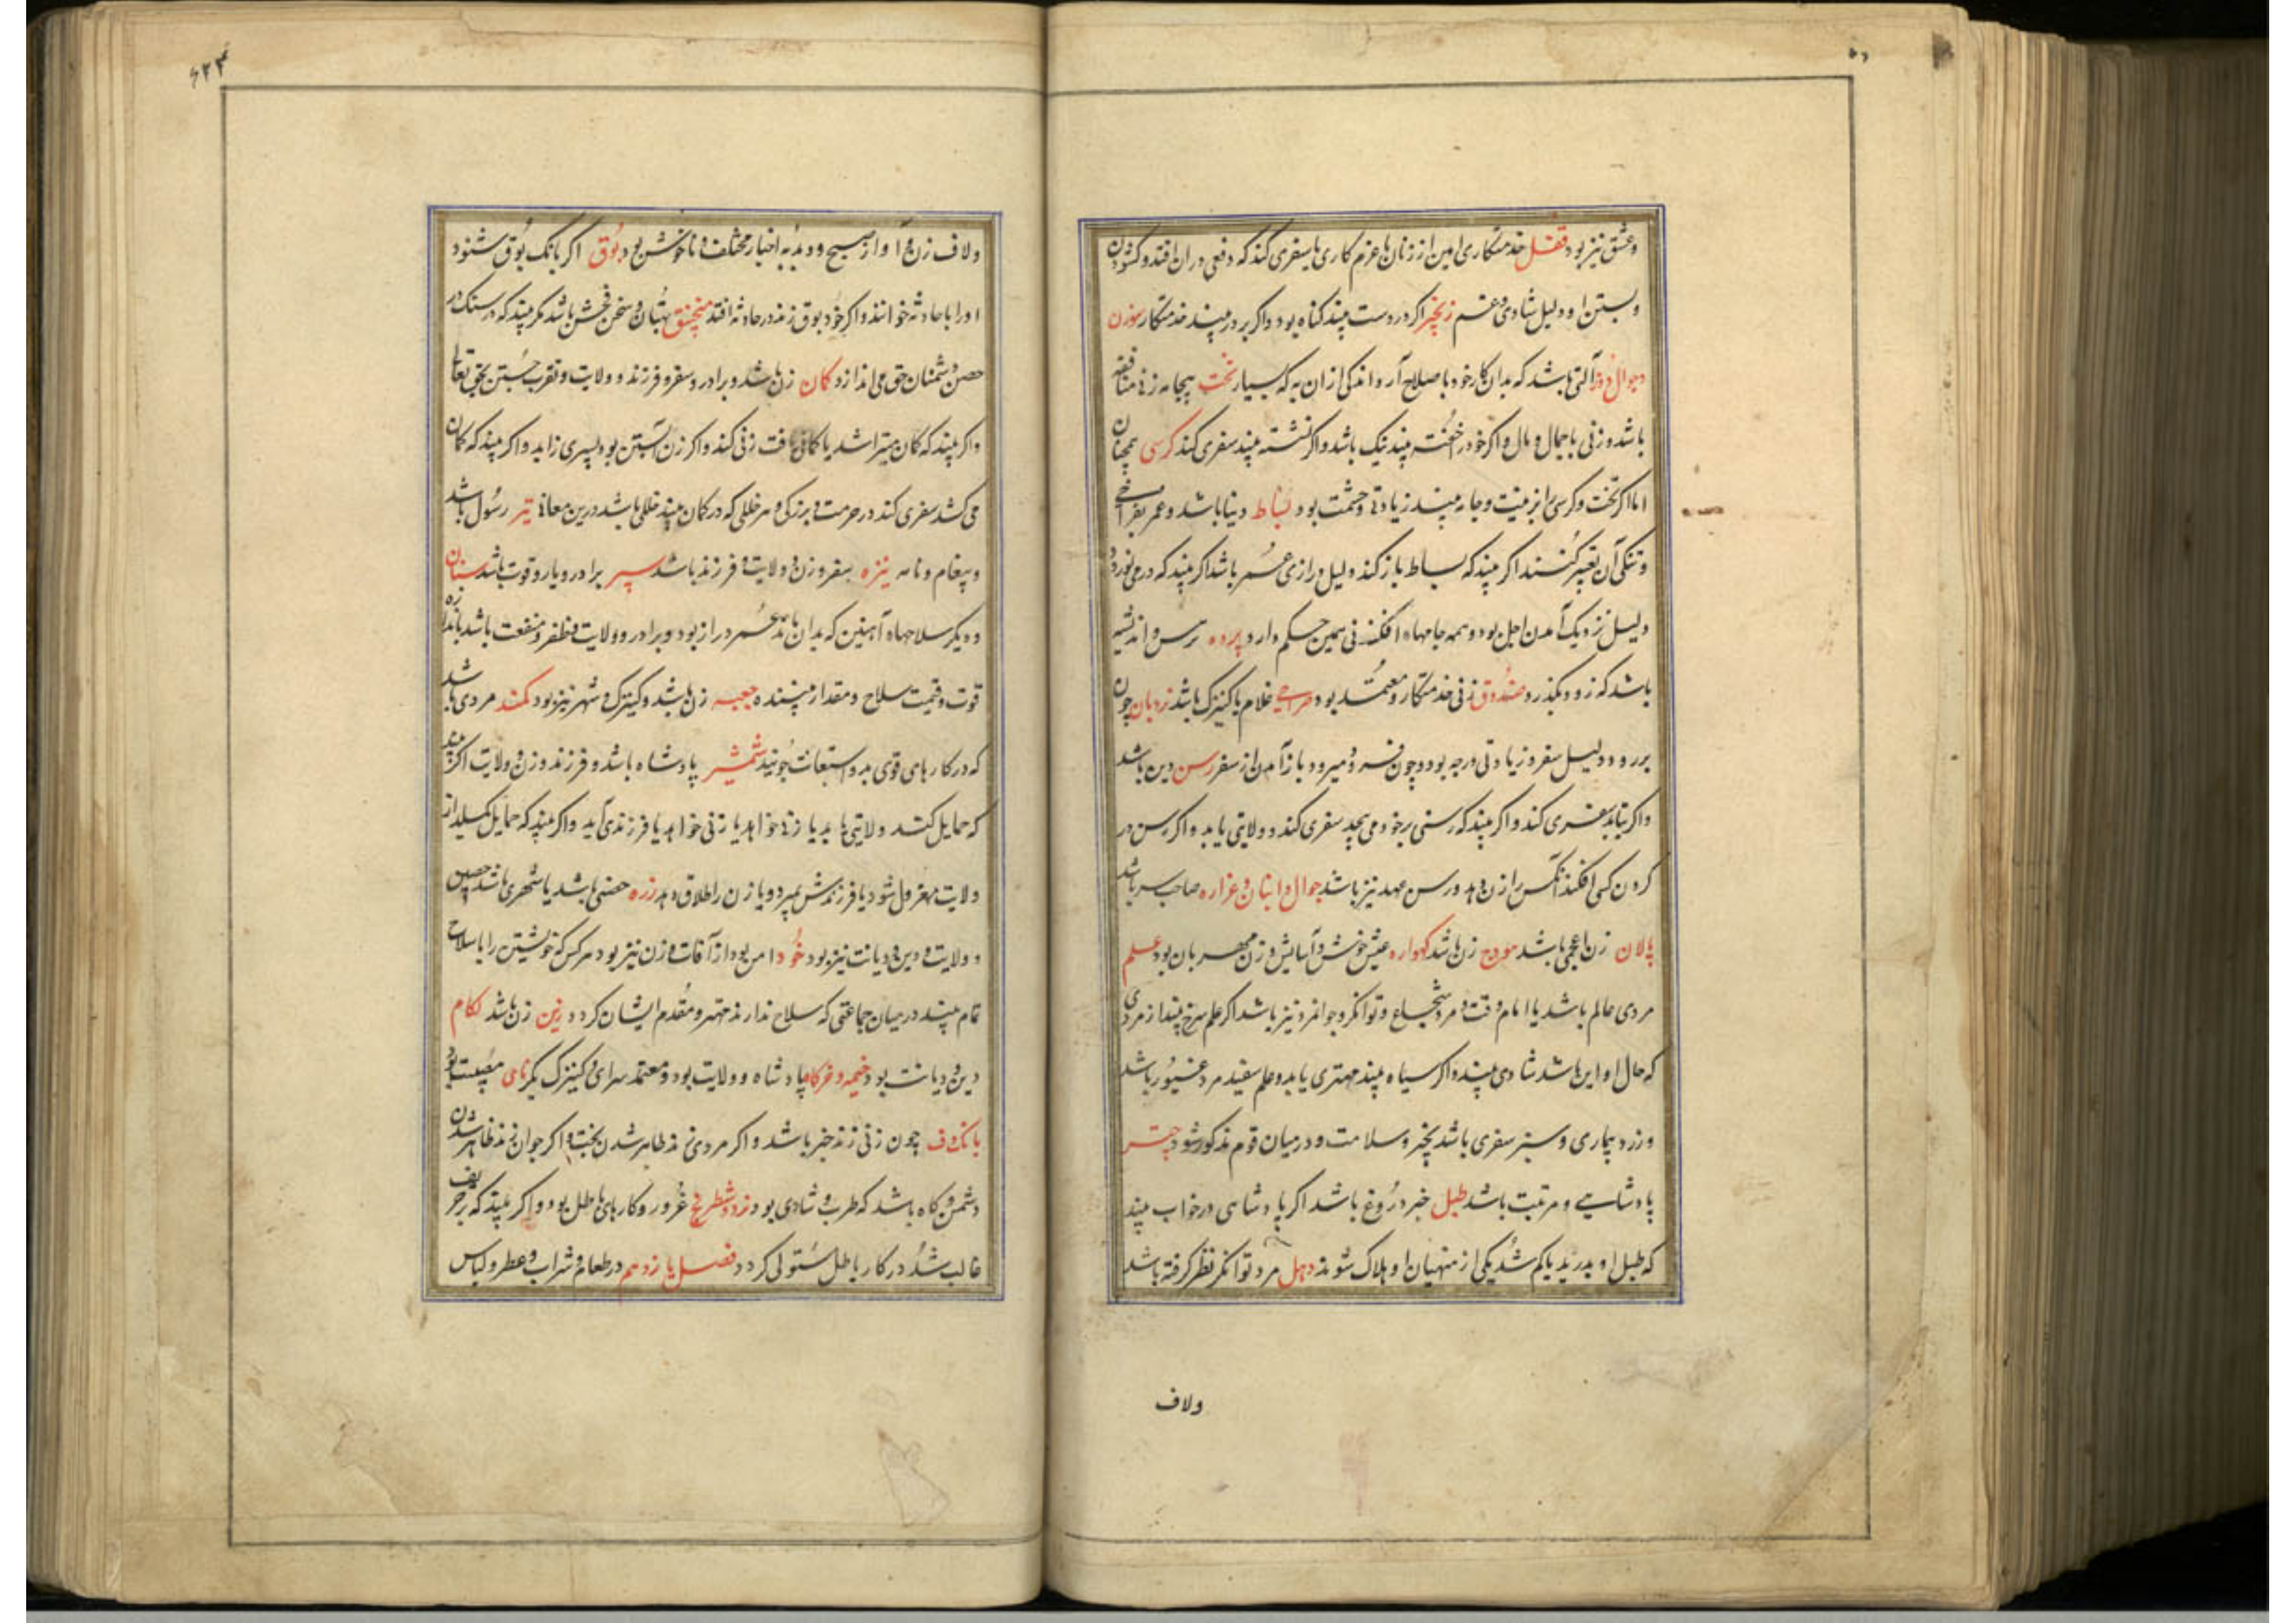 و عشق نیز بود قفل خدمتکاری امین از زنان با عزم کاری یا سفری کند که دفعی در ان افتد و کشودن
و بستن او دلیل شادی و غم زنجیر اکر در دست بیند کناه بود و اکر بر در بیند خدمتکار سوزن
وجوال دوز آلتی باشد که بدان کار خود باصلاح آرد و اندکی از ان به که بسیار تخت بیجامه زنی منافقه
باشد و زنی با جمال و مال و اکر خود را خفته بیند نیک باشد و اکر نشسته بیند سفری کند کرسی همچنان
اما اکر تخت و کرسی را بزینت و جامه بیند زیادتی و حشمت بود بساط دنیا باشد و عمر بفراخی
و تنکی آن تعبیر کنند اکر بیند که بساط باز کند دلیل درازی عمر باشد اکر بیند که در می نوردد
دلیل نزدیک آمدن اجل بود و همه جامهاء افکندنی همین حکم دارد پرده ترس و اندیشه
باشد که زود بگذرد صندوق زنی خدمتکار و معتمد بود صراحی غلام یا کنیزک باشد نردبان چون
بر رود دلیل سفر و زیادتی درجه بود و چون فرود میرود باز آمدن از سفر رسن دین باشد
و اکر بتابد سفری کند و اکر بیند که رسنی بر خود می پیچد سفری کند و ولایتی یابد و اکر رسن در
کردن کسی افکند آنکس را زن دهد و رسن عهد نیز باشد جوال و انبان و غراره صاحب سر باشد
پالان زن اعجمی باشد هودج زن باشد کهواره عیش خوش و آسایش و زن مهربان بود علم
مردی عالم باشد یا امام وقت و مرد شجاع و توانکر و جوانمرد نیز باشد اکر علم سرخ بیند از مردی
که حال او این باشد شادی بیند و اکر سیاه بیند مهتری یابد و علم سفید مرد غیور باشد
و زرد بیماری و سبز سفری باشد بخیر و سلامت و در میان قوم مذکور شود چتر
پادشاهی و مرتبت باشد طبل خبر دروغ باشد اکر پادشاهی در خواب بیند
که طبل او بدرید یا کم شد یکی از منهیان او هلاک شوند دهل مرد توانکر نظر کرفته باشد
ولاف
۶۲۳
ولاف زن و آواز صبح و دبدبه اخبار مختلف و ناخوش بود بوق اکر بانک بوق شنود
او را باحادثه خوانند و اکر خود بوق زند در حادثه افتد منجنیق بهتان و سخن فحش باشد مکر بیند که سنک در
حصن دشمنان حق می اندازد کمان زن باشد و برادر و سفر و فرزند و ولایت و تقرب جستن بحق تعالی
و اکر بیند که کمان میتراشد یا کمانی یافت زنی کند و اکر زن آبستن بود پسری زاید و اکر بیند که کمان
می کشد سفری کند در حرمت و بزرکی و هر خللی که در کمان بیند خللی باشد درین معانی تیر رسول باشد
و پیغام و نامه نیزه سفر و زن و ولایت و فرزند باشد سپر برادر و یار و قوت باشد سنان
و دیکر سلاحهاء آهنین که بدان ماند عمر دراز بود و برادر و ولایت و ظفر و منفعت باشد باندازه
قوت و قیمت سلاح و مقدار بیننده جعبه زن باشد و کنیزک و شهر نیز بود کمند مردی باشد
که در کارهای قوی بدو استعانت جویند شمشیر پادشاه باشد و فرزند و زن و ولایت اکر بیند
که حمایل کشد ولایتی یابد یا زنی خواهد یا فرزندی آید و اکر بیند که حمایل کسلید از
ولایت معزول شود یا فرزندش بمیرد و یا زن را طلاق دهد زره حصنی باشد یا شهری باشد حصین
و ولایت و دین و دیانت نیز بود خود امن بود از آفات و زن نیز بود هر کس که خویشتن را با سلاح
تمام بیند در میان جماعتی که سلاح ندارند مهتر و مقدم ایشان کردد زین زن باشد لکام
دین و دیانت بود خیمه و خرکاه پادشاه و ولایت بود و معتمد سرای و کنیزک بکر نای مصیبت بود
بانک دف چون زنی زند خبر باشد و اکر مردی زند ظاهر شدن بخت و اکر جوان زند ظاهر شدن
دشمن و کاه باشد که طرب و شادی بود نرد و شطرنج غرور و کارهای باطل بود و اکر بیند که بر حریف
غالب شد در کار باطل مستولی کردد فصل یازدهم در طعام و شراب و عطر و لباس